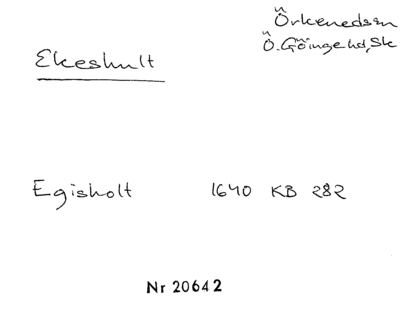 Örkenedssn
Ö.Göingehd,Sk
Ekeshult
Egisholt 1640 KB 282
Nr 20642